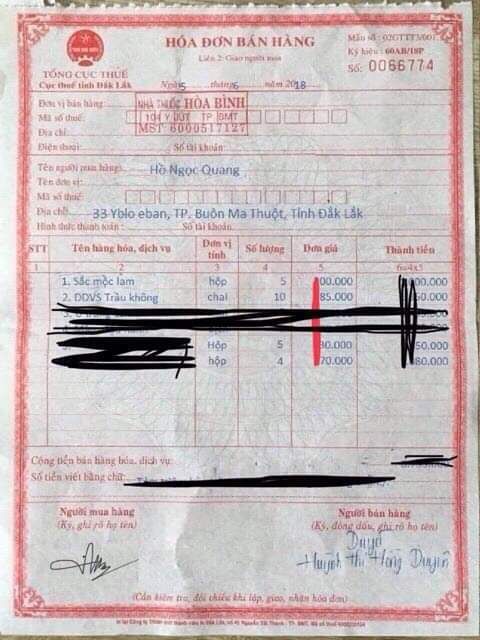 HÓA ĐƠN BÁN HÀNG
Liên 2: Giao người mua
Mẫu số: 02GTTT3/001
Ký hiệu: 60AB/18P
Số: 0066774
TỔNG CỤC THUẾ
Cục thuế tỉnh Đắk Lắk
Ngày 5 tháng 6 năm 2018
Đơn vị bán hàng:
NHÀ THUỐC HÒA BÌNH
Mã số thuế:
104 Y JÚT TP BMT
Địa chỉ:
MST 6000517127
Điện thoại: Số tài khoản:
Tên người mua hàng: Hồ Ngọc Quang
Tên đơn vị:
Mã số thuế:
Địa chỉ: 33 Yblo eban, TP. Buôn Ma Thuột, Tỉnh Đắk Lắk
Hình thức thanh toán: Số tài khoản:
STT Tên hàng hóa, dịch vụ Đơn vị tính Số lượng Đơn giá Thành tiền
1 2 3 4 5 6=4x5
1. Sắc mộc lam hộp 5 00.000 000.000
2. DDVS Trầu không chai 10 85.000 50.000
Hộp 5 30.000 50.000
hộp 4 70.000 80.000
Cộng tiền bán hàng hóa, dịch vụ:
Số tiền viết bằng chữ:
Người mua hàng
(Ký, ghi rõ họ tên)
Người bán hàng
(Ký, đóng dấu, ghi rõ họ tên)
Duyên
Huỳnh Thị Hồng Duyên
(Cần kiểm tra, đối chiếu khi lập, giao, nhận hóa đơn)